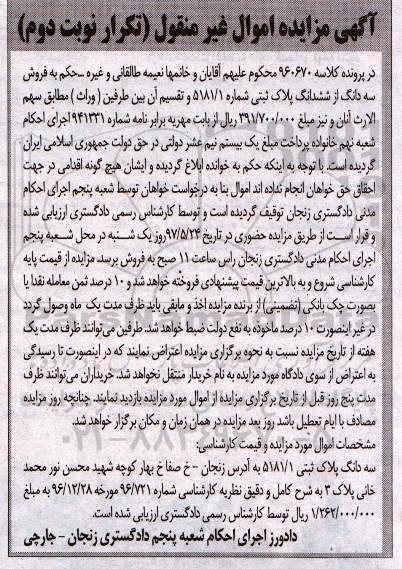 آگهی مزایده اموال غیر منقول (تکرار نوبت دوم)
در پرونده کلاسه ۹۶۰۶۷۰ محکوم علیهم آقایان و خانمها نعیمه طالقانی و غیره ـحکم به فروش
سه دانگ از ششدانگ پلاک ثبتی شماره ۵۱۸۱/۱ و تقسیم آن بین طرفین ( وراث ) مطابق سهم
الارث آنان و نیز مبلغ ۳۹۱/۷۰۰/۰۰۰ ریال از بابت مهریه برابر نامه شماره ۹۴۱۳۳۱ اجرای احکام
شعبه نهم خانواده پرداخت مبلغ یک بیستم نیم عشر دولتی در حق دولت جمهوری اسلامی ایران
گردیده است. با توجه به اینکه حکم به خوانده ابلاغ گردیده و ایشان هیچ گونه اقدامی در جهت
احقاق حق خواهان انجام نداده اند اموال بنا به درخواست خواهان توسط شعبه پنجم اجرای احکام
مدنی دادگستری زنجان توقیف گردیده است و توسط کارشناس رسمی دادگستری ارزیابی شده
و قرار است از طریق مزایده حضوری در تاریخ ۹۷/۵/۲۴روز یک شنبه در محل شعبه پنجم
اجرای احکام مدنی دادگستری زنجان راس ساعت ۱۱ صبح به فروش برسد. مزایده از قیمت پایه
کارشناسی شروع و به بالاترین قیمت پیشنهادی فروخته خواهد شد و ۱۰ درصد ثمن معامله نقدا یا
بصورت چک بانکی (تضمینی) از برنده مزایده اخذ و مابقی باید ظرف مدت یک ماه وصول گردد
در غیر اینصورت ۱۰ درصد ماخوذه به نفع دولت ضبط خواهد شد. طرفین می‌توانند ظرف مدت یک
هفته از تاریخ مزایده نسبت به نحوه برگزاری مزایده اعتراض نمایند که در اینصورت تا رسیدگی
به اعتراض از سوی دادگاه مورد مزایده به نام خریدار منتقل نخواهد شد. خریداران می‌توانند ظرف
مدت پنج روز قبل از تاریخ برگزاری مزایده از اموال مورد مزایده بازدید نمایند. چنانچه روز مزایده
مصادف با ایام تعطیل باشد روز بعد مزایده در همان زمان و مکان برگزار خواهد شد.
مشخصات اموال مورد مزایده و قیمت کارشناسی:
سه دانگ پلاک ثبتی ۵۱۸۱/۱ به آدرس زنجان - خ صفا خ بهار کوچه شهید محسن نور محمد
خانی پلاک ۳ به شرح کامل و دقیق نظریه کارشناسی شماره ۹۶/۷۲۱ مورخه ۹۶/۱۲/۲۸ به مبلغ
۱/۲۶۲/۰۰۰/۰۰۰ ریال توسط کارشناس رسمی دادگستری ارزیابی شده است.
دادورز اجرای احکام شعبه پنجم دادگستری زنجان - جارچی